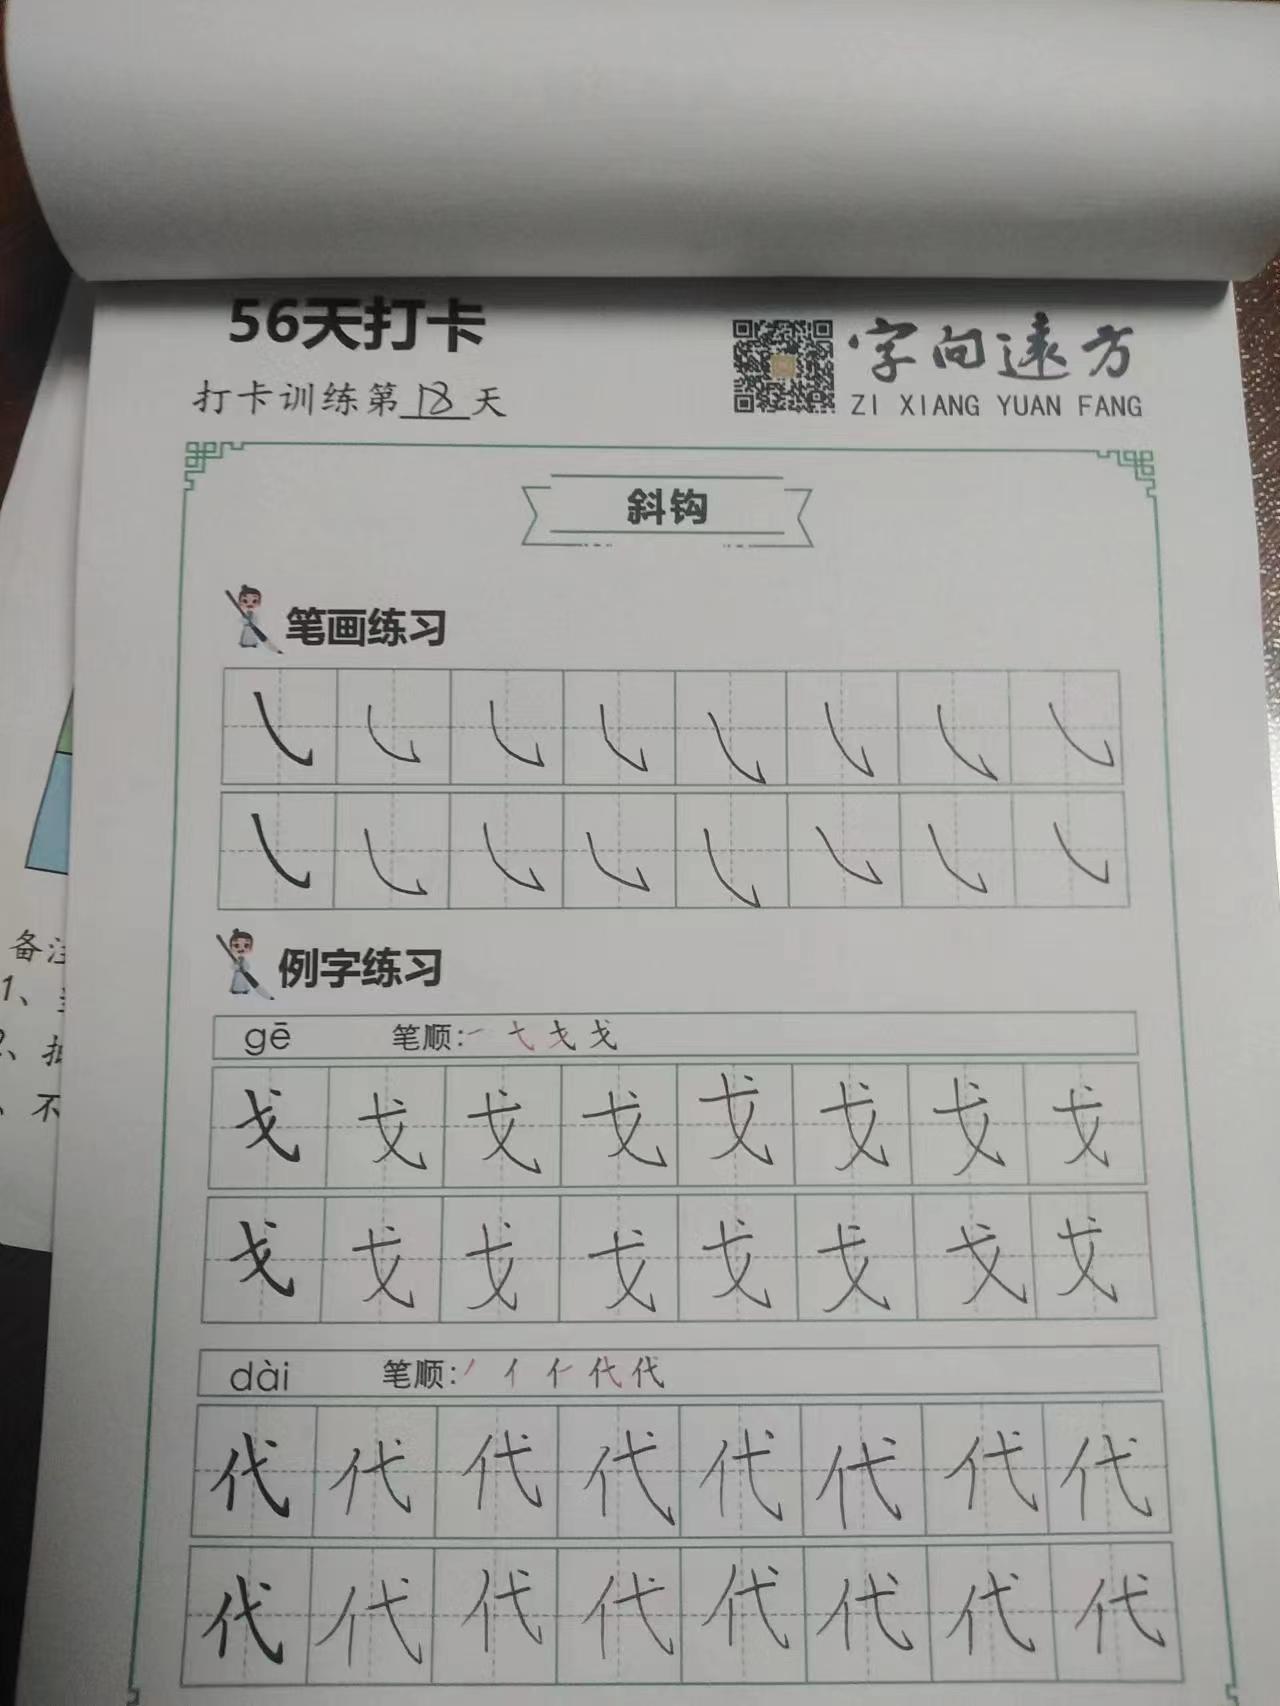 56天打卡
字向遠方
打卡训练第18天
ZI XIANG YUAN FANG
斜钩
笔画练习
㇂ ㇂ ㇂ ㇂ ㇂ ㇂ ㇂ ㇂
㇂ ㇂ ㇂ ㇂ ㇂ ㇂ ㇂ ㇂
例字练习
gē 笔顺: 一 弋 戈 戈
戈 戈 戈 戈 戈 戈 戈 戈
戈 戈 戈 戈 戈 戈 戈 戈
dài 笔顺: 丿 亻 仁 代 代
代 代 代 代 代 代 代 代
代 代 代 代 代 代 代 代
备注
1、
2、
、不